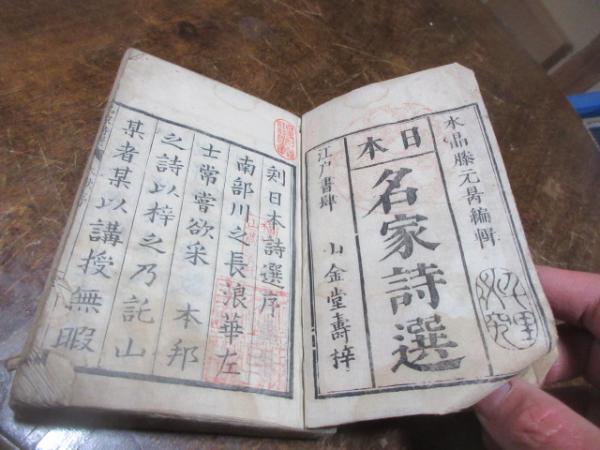 水晶藤元昺編輯
日本
名家詩選
江戶書肆 山金堂壽梓
刻日本詩選序
南部川之長浪華左
士常嘗欲采 本邦
之詩以梓之乃託山
某者某以講授無暇